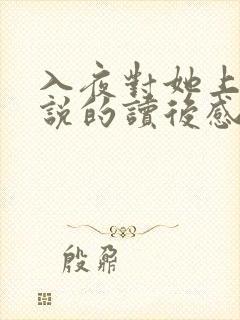 入夜對她上
說的讀後感
殷鼐